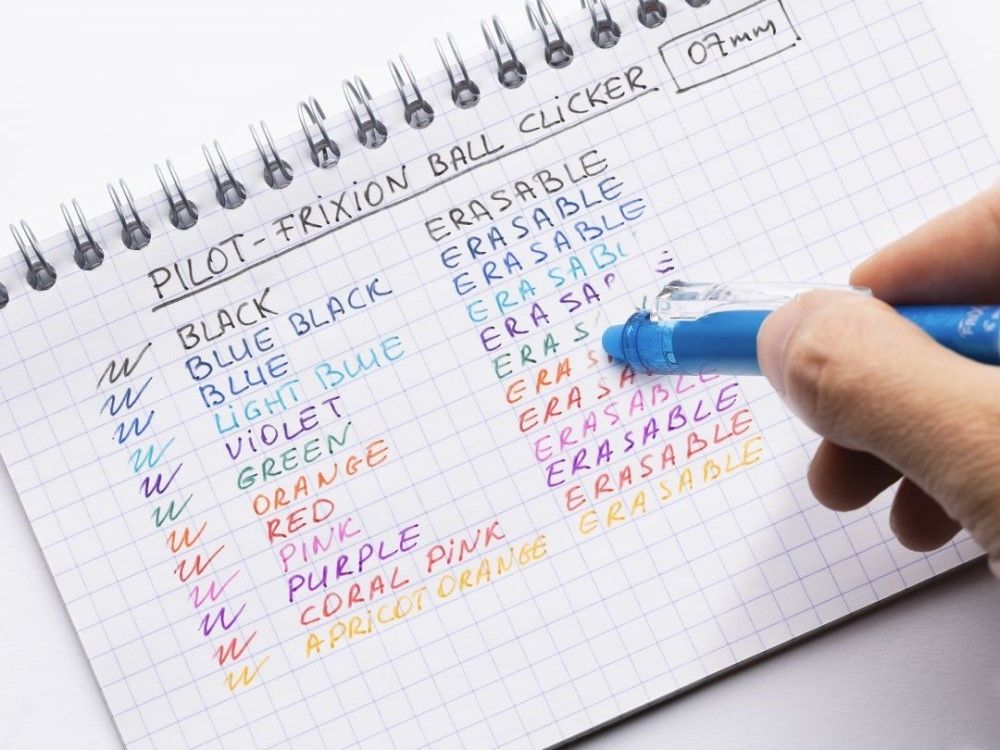 PILOT-FRIXION BALL CLICKER 07mm
BLACK ERASABLE
BLUE BLACK ERASABLE
BLUE ERASABLE
LIGHT BLUE ERASABL
VIOLET ERASA
GREEN ERAS
ORANGE ERAS
RED ERASA
PINK ERASABLE
PURPLE ERASABLE
CORAL PINK ERASABLE
APRICOT ORANGE ERASABLE